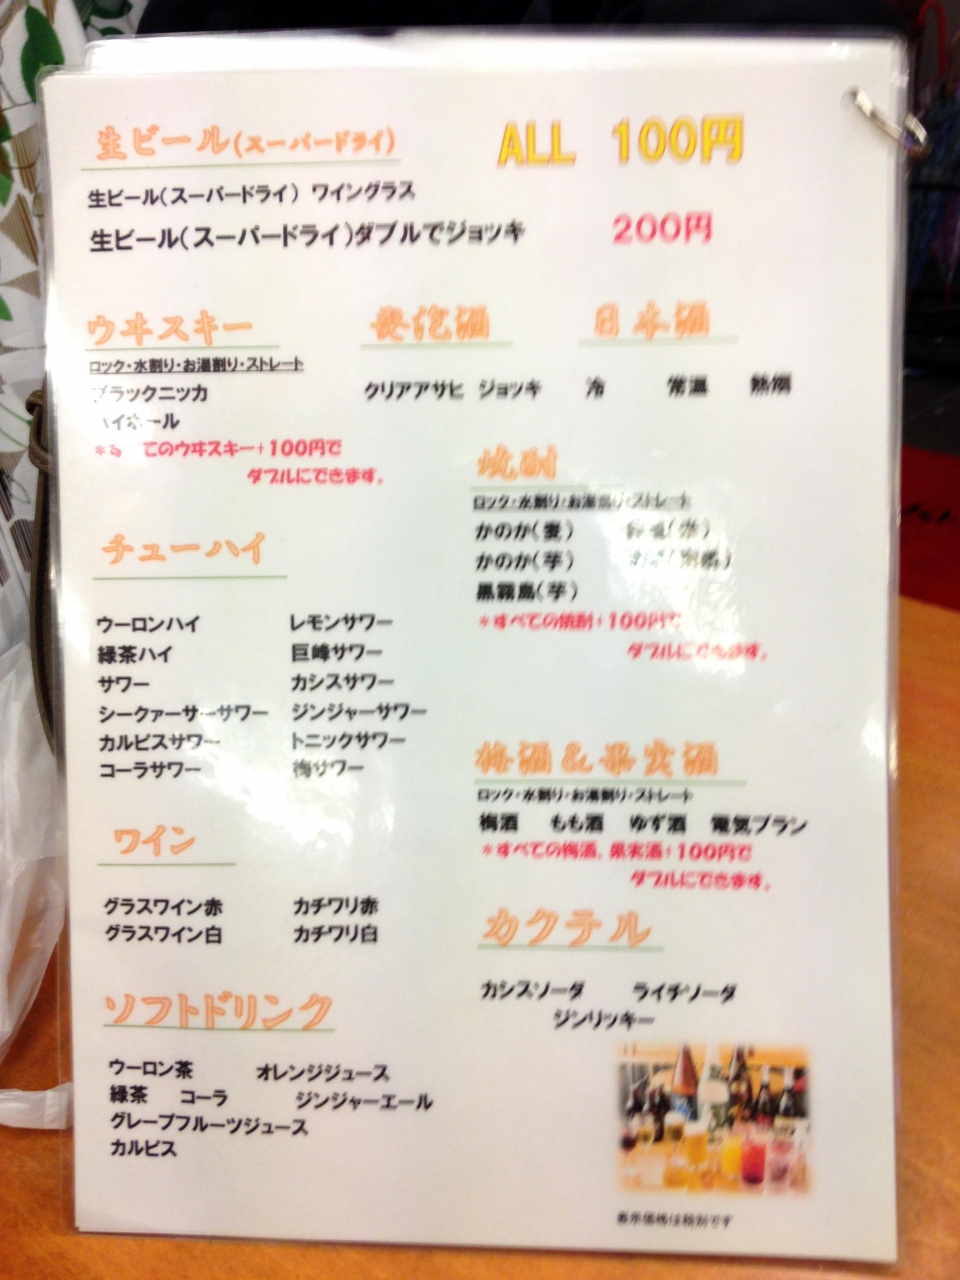 生ビール(スーパードライ) ALL 100円
生ビール(スーパードライ) ワイングラス
生ビール(スーパードライ)ダブルでジョッキ 200円
ウヰスキー
ロック・水割り・お湯割り・ストレート
ブラックニッカ
ハイボール
*すべてのウヰスキー+100円で
ダブルにできます。
発泡酒
クリアアサヒ ジョッキ
日本酒
冷 常温 熱燗
焼酎
ロック・水割り・お湯割り・ストレート
かのか(麦)
かのか(芋)
黒霧島(芋)
*すべての焼酎+100円で
ダブルにできます。
チューハイ
ウーロンハイ レモンサワー
緑茶ハイ 巨峰サワー
サワー カシスサワー
シークァーサーサワー ジンジャーサワー
カルピスサワー トニックサワー
コーラサワー 梅サワー
梅酒&果実酒
ロック・水割り・お湯割り・ストレート
梅酒 もも酒 ゆず酒 電気ブラン
*すべての梅酒、果実酒+100円で
ダブルにできます。
ワイン
グラスワイン赤 カチワリ赤
グラスワイン白 カチワリ白
カクテル
カシスソーダ ライチソーダ
ジンリッキー
ソフトドリンク
ウーロン茶 オレンジジュース
緑茶 コーラ ジンジャーエール
グレープフルーツジュース
カルピス
表示価格は税別です